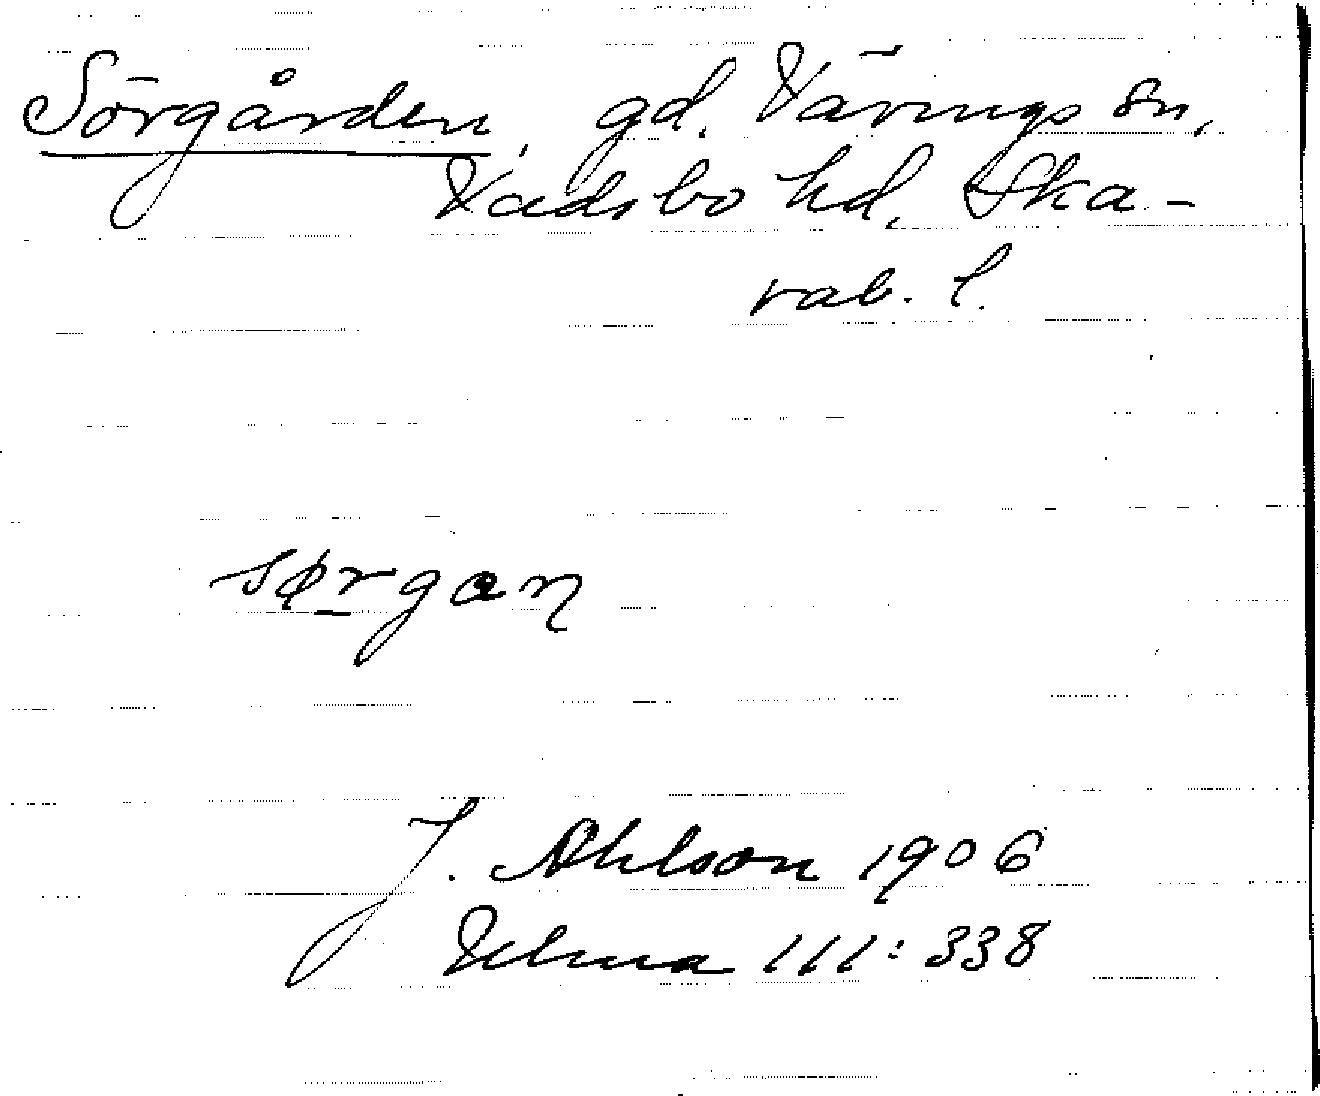 Sörgården, gd. Värings sn,
Vadsbo hd, Ska-
rab. l.
sørgan
J. Ahlson 1906
Ulma 111:338